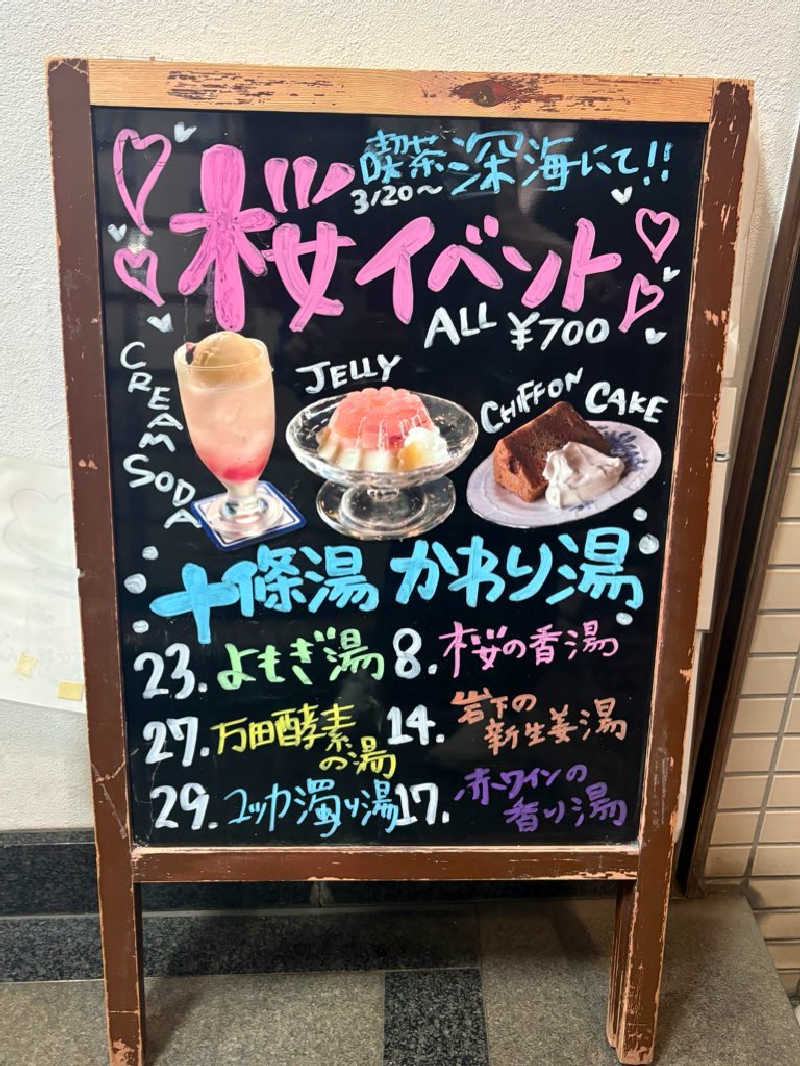 喫茶深海にて!!
3/20〜
桜イベント
ALL ¥700
CREAM SODA
JELLY
CHIFFON CAKE
十條湯 かわり湯
23. よもぎ湯
27. 万田酵素の湯
29. ユッカ濁り湯
8. 桜の香湯
14. 岩下の新生姜湯
17. 赤ワインの香り湯